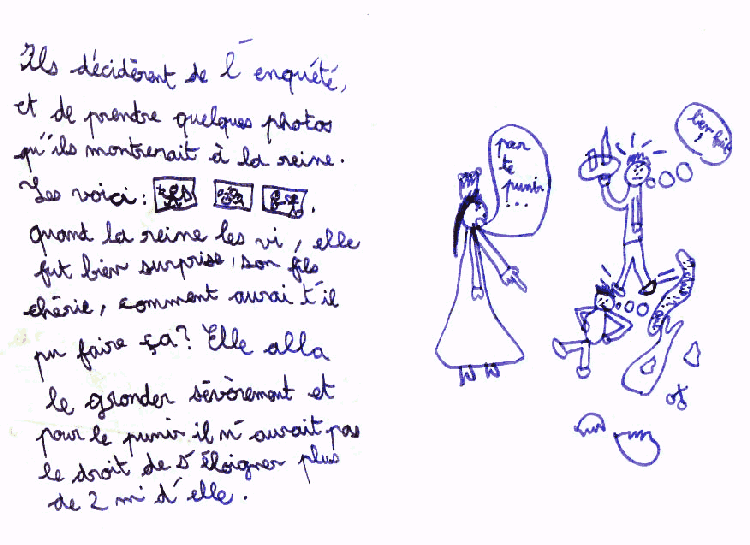 Ils décidèrent de l'enquété,
et de prendre quelques photos
qu'ils montrerait à la reine.
Les voici : .
quand la reine les vi, elle
fut bien surprise, son fils
chérie, comment aurai t'il
pu faire ça ? Elle alla
le gronder sévèrement et
pour le punir il n'aurait pas
le droit de s'éloigner plus
de 2 m d'elle.
par
te
punir
...
bien fait
!